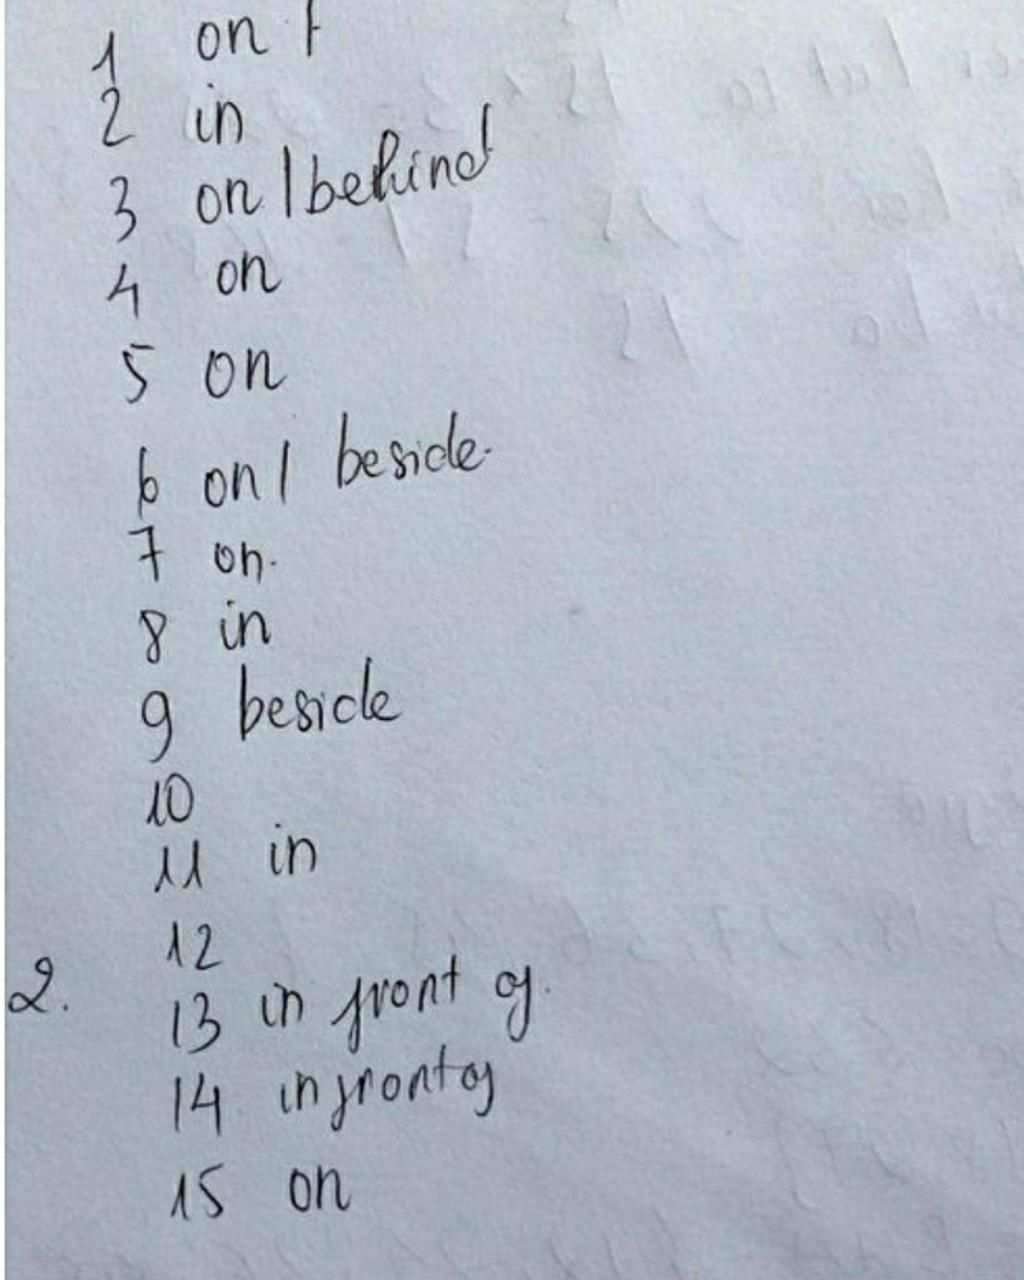 1 on t
2 in
3 on / behind
4 on
5 on
6 on / beside.
7 on.
8 in
9 beside
10
11 in
12
2.
13 in front of.
14 in front of
15 on